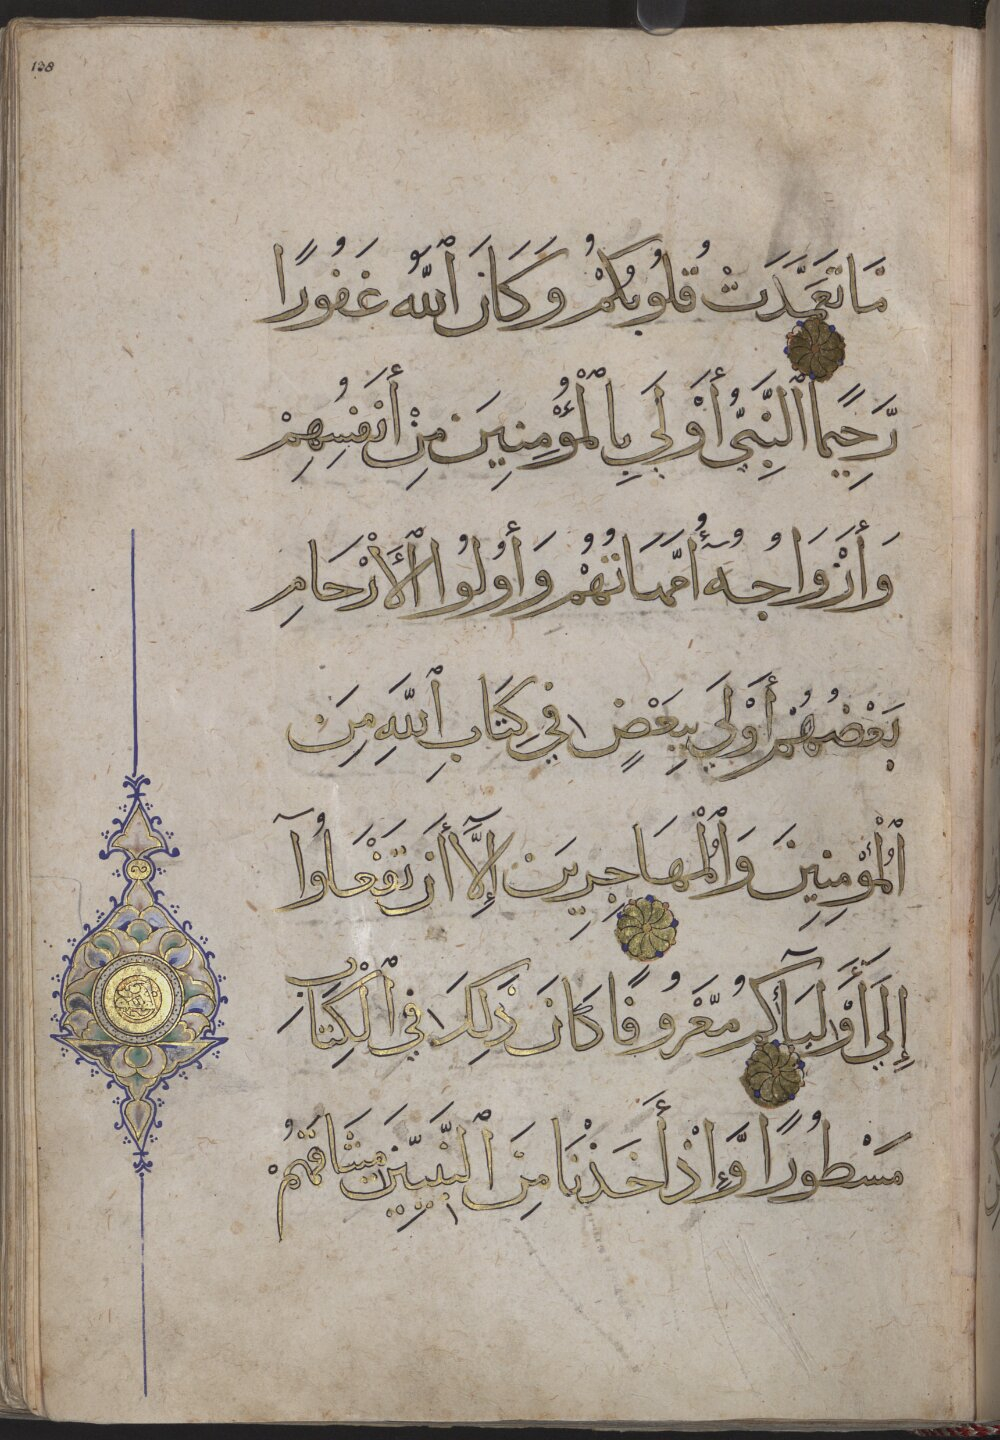 138
مَا تَعَمَّدَتْ قُلُوبُكُمْ وَكَانَ ٱللَّهُ غَفُورًا
رَّحِيمًا ٱلنَّبِىُّ أَوْلَى بِٱلْمُؤْمِنِينَ مِنْ أَنفُسِهِمْ
وَأَزْوَاجُهُٓ أُمَّهَاتُهُمْ وَأُوْلُوا ٱلْأَرْحَامِ
بَعْضُهُمْ أَوْلَى بِبَعْضٍ فِي كِتَابِ ٱللَّهِ مِنَ
ٱلْمُؤْمِنِينَ وَٱلْمُهَاجِرِينَ إِلَّا أَن تَفْعَلُوٓا
إِلَى أَوْلِيَآئِكُم مَّعْرُوفًا كَانَ ذَلِكَ فِي ٱلْكِتَابِ
مَسْطُورًا وَإِذْ أَخَذْنَا مِنَ ٱلنَّبِيِّينَ مِيثَاقَهُمْ